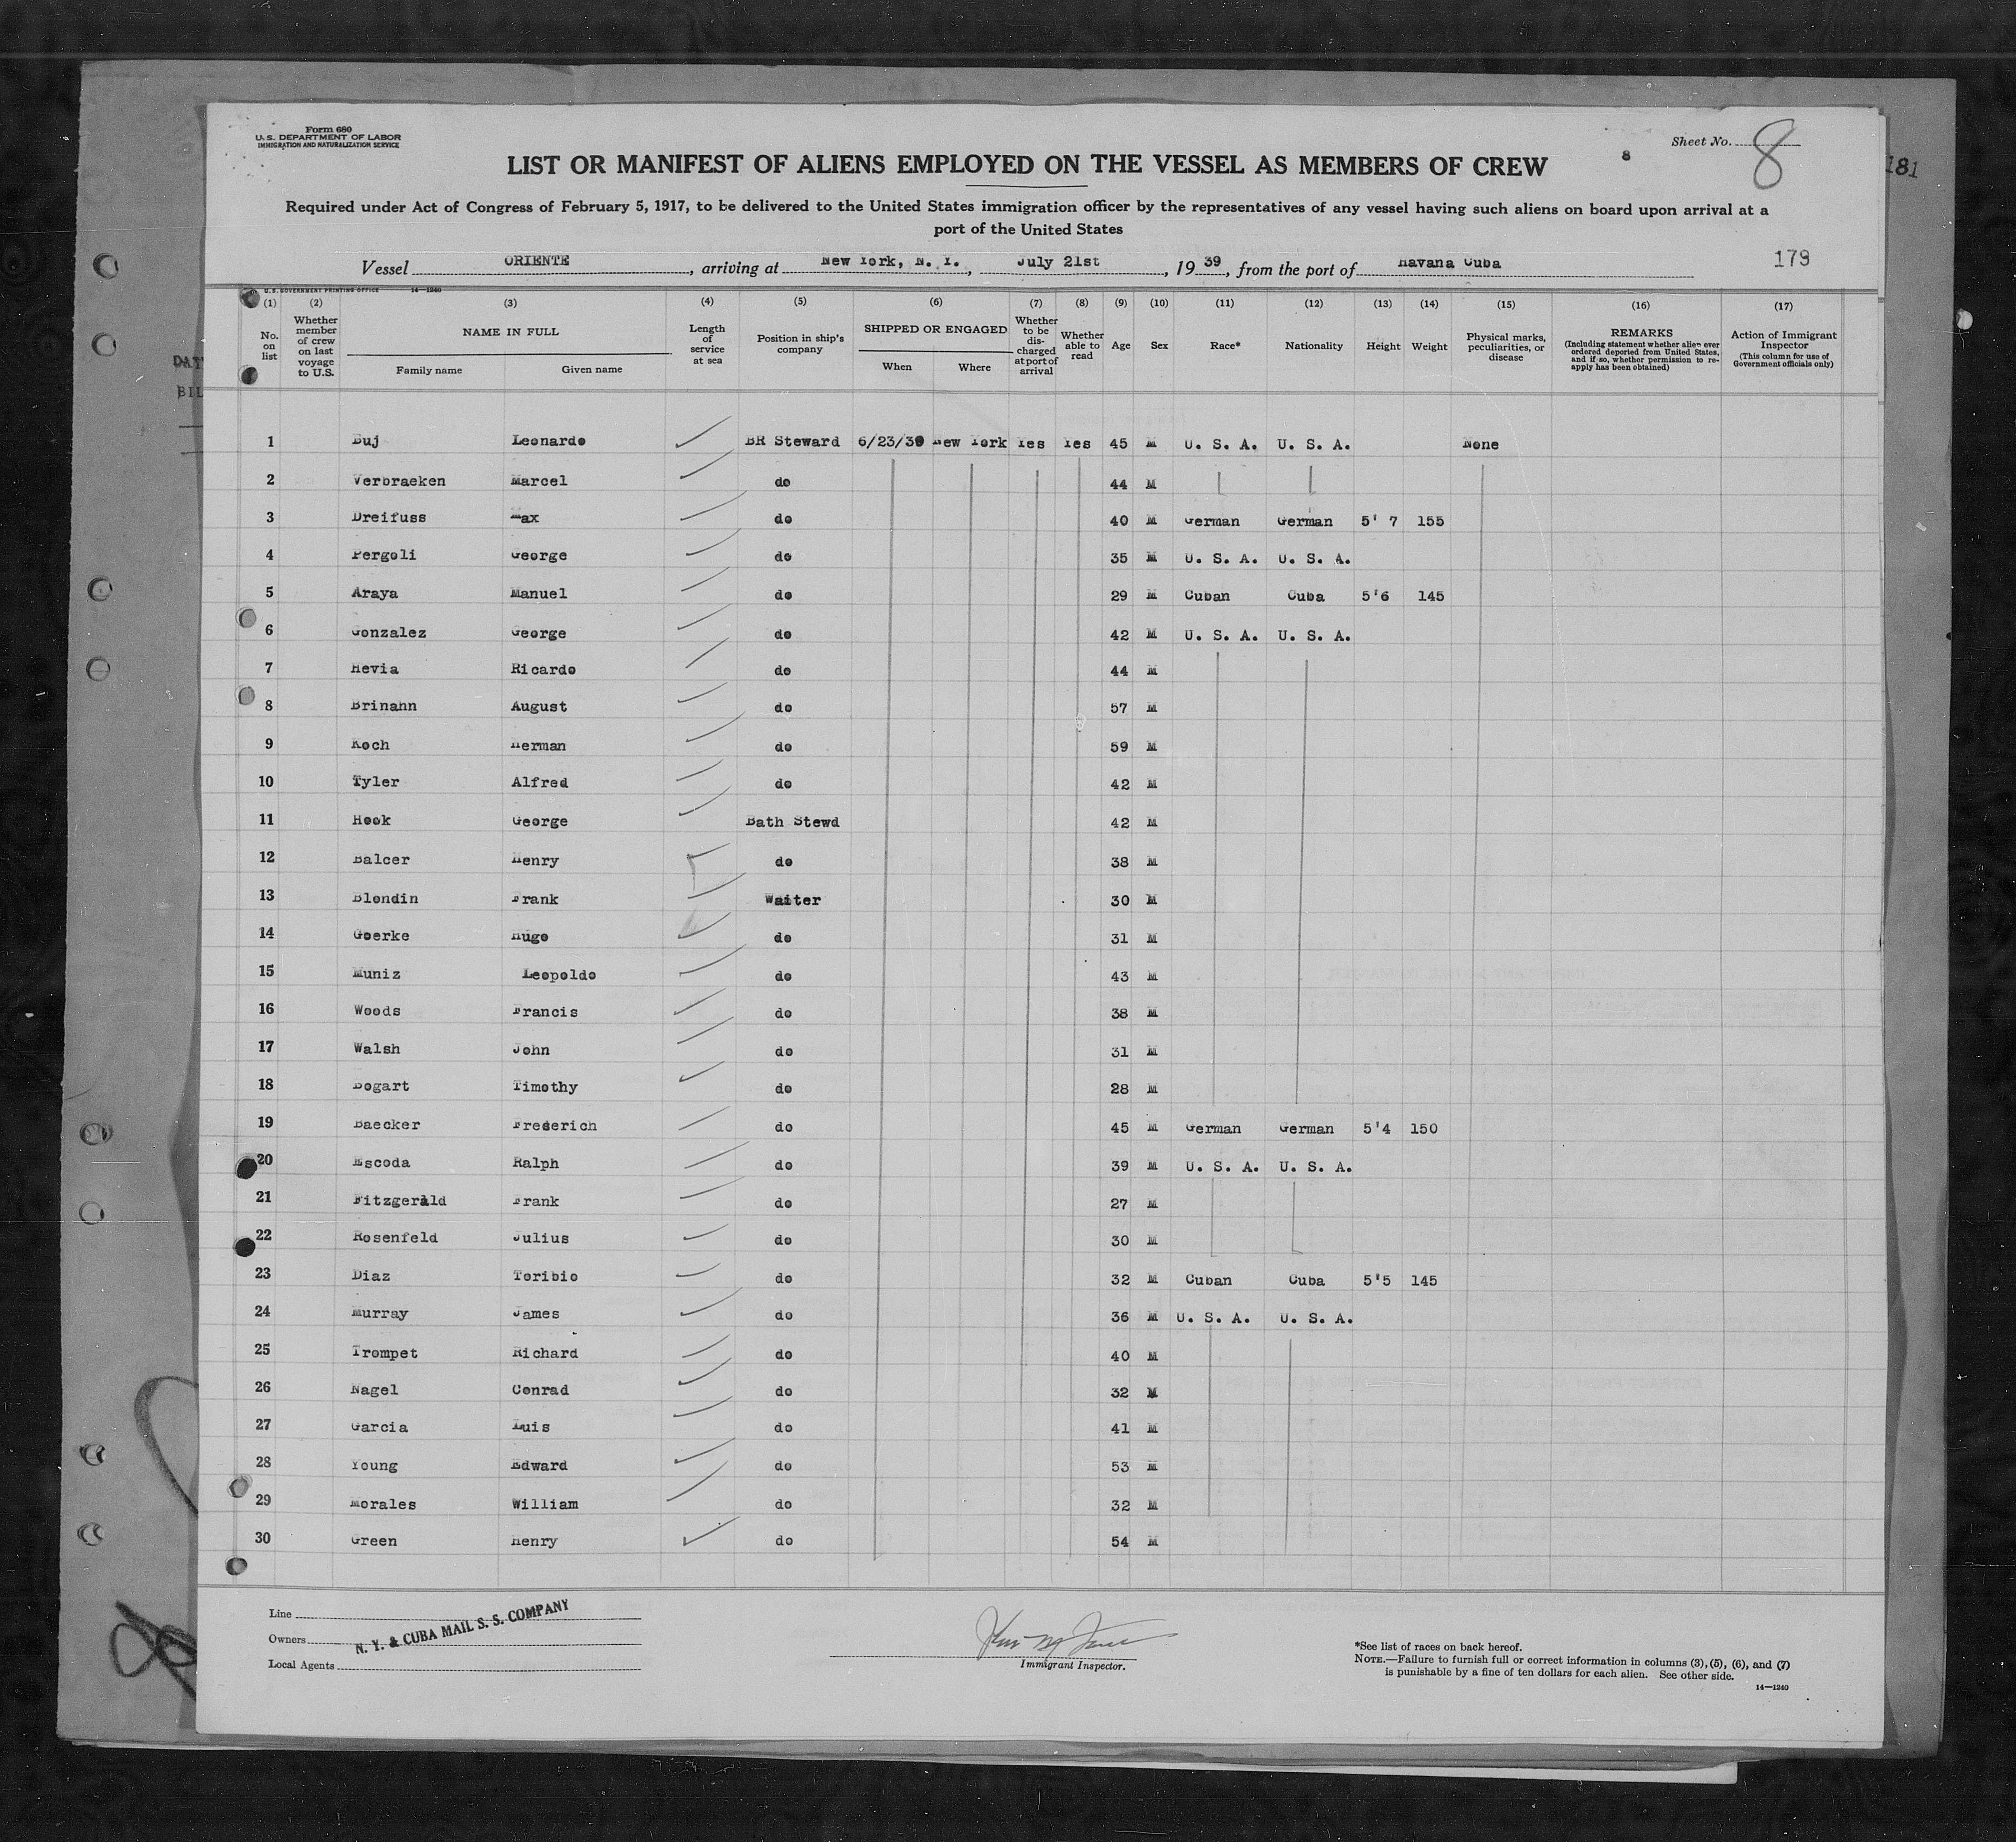 Form 680
U. S. DEPARTMENT OF LABOR
IMMIGRATION AND NATURALIZATION SERVICE
Sheet No. 8
8
181
LIST OR MANIFEST OF ALIENS EMPLOYED ON THE VESSEL AS MEMBERS OF CREW
Required under Act of Congress of February 5, 1917, to be delivered to the United States immigration officer by the representatives of any vessel having such aliens on board upon arrival at a
port of the United States
Vessel ORIENTE, arriving at New York, N. Y., July 21st, 19 39, from the port of Havana Cuba
179
U. S. GOVERNMENT PRINTING OFFICE 14—1240
(1) (2) (3) (4) (5) (6) (7) (8) (9) (10) (11) (12) (13) (14) (15) (16) (17)
No. on list
Whether member of crew on last voyage to U.S.
NAME IN FULL
Family name Given name
Length of service at sea
Position in ship's company
SHIPPED OR ENGAGED
When Where
Whether to be discharged at port of arrival
Whether able to read
Age
Sex
Race*
Nationality
Height
Weight
Physical marks, peculiarities, or disease
REMARKS
(Including statement whether alien ever ordered deported from United States, and if so, whether permission to re-apply has been obtained)
Action of Immigrant Inspector
(This column for use of Government officials only)
DAT
BIL
1 Buj Leonardo BR Steward 6/23/39 New York Yes Yes 45 M U. S. A. U. S. A. None
2 Verbraeken Marcel do 44 M
3 Dreifuss Max do 40 M German German 5' 7 155
4 Pergoli George do 35 M U. S. A. U. S. A.
5 Araya Manuel do 29 M Cuban Cuba 5'6 145
6 Gonzalez George do 42 M U. S. A. U. S. A.
7 Hevia Ricardo do 44 M
8 Brinahn August do 57 M
9 Koch Herman do 59 M
10 Tyler Alfred do 42 M
11 Hook George Bath Stewd 42 M
12 Balcer Henry do 38 M
13 Blondin Frank Waiter 30 M
14 Goerke Hugo do 31 M
15 Muniz Leopoldo do 43 M
16 Woods Francis do 38 M
17 Walsh John do 31 M
18 Bogart Timothy do 28 M
19 Baecker Frederich do 45 M German German 5'4 150
20 Escoda Ralph do 39 M U. S. A. U. S. A.
21 Fitzgerald Frank do 27 M
22 Rosenfeld Julius do 30 M
23 Diaz Toribio do 32 M Cuban Cuba 5'5 145
24 Murray James do 36 M U. S. A. U. S. A.
25 Trompet Richard do 40 M
26 Nagel Conrad do 32 M
27 Garcia Luis do 41 M
28 Young Edward do 53 M
29 Morales William do 32 M
30 Green Henry do 54 M
Line
Owners
Local Agents
N. Y. & CUBA MAIL S. S. COMPANY
Immigrant Inspector.
*See list of races on back hereof.
NOTE.—Failure to furnish full or correct information in columns (3), (5), (6), and (7)
is punishable by a fine of ten dollars for each alien. See other side.
14—1240